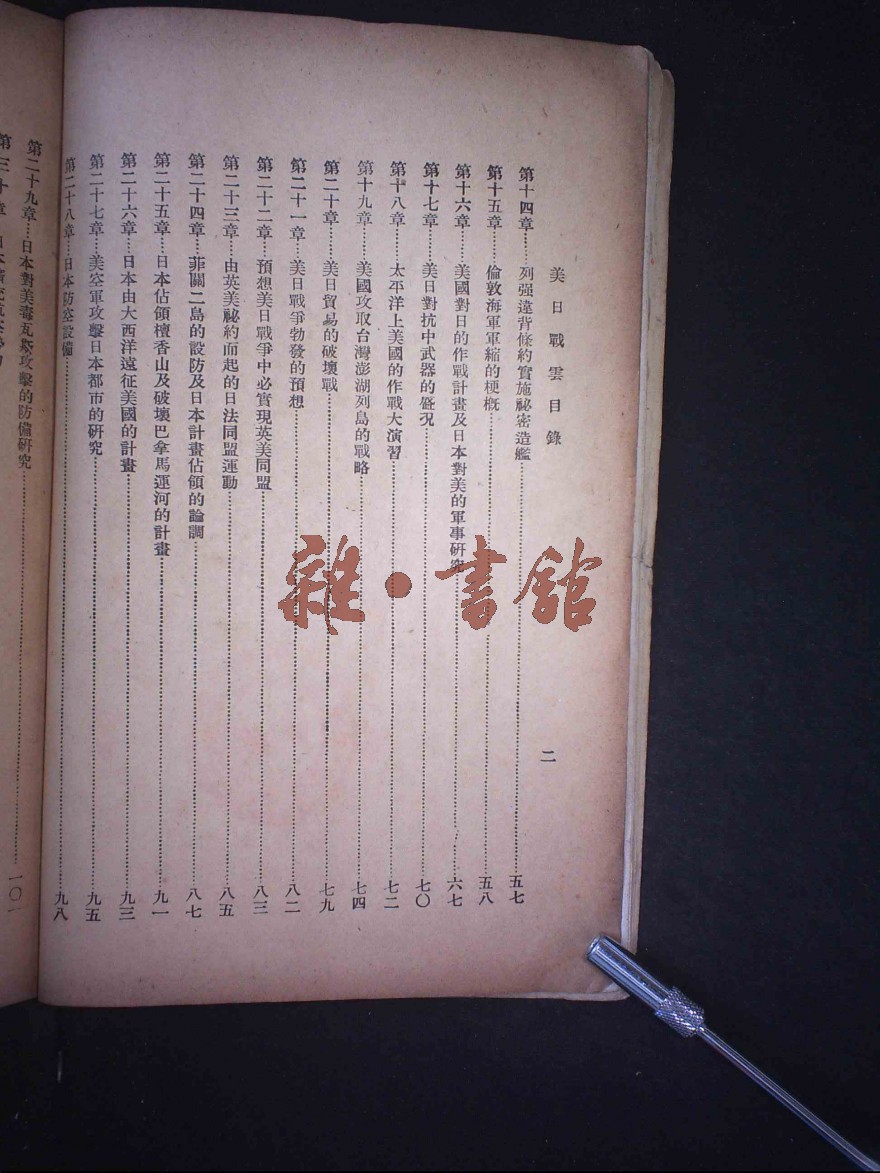 美日戰雲目錄
二
第十四章……列强違背條約實施祕密造艦……五七
第十五章……倫敦海軍軍縮的梗概……五八
第十六章……美國對日的作戰計畫及日本對美的軍事研究……六七
第十七章……美日對抗中武器的磐況……七〇
第十八章……太平洋上美國的作戰大演習……七二
第十九章……美國攻取台灣澎湖列島的戰略……七四
第二十章……美日貿易的破壞戰……七九
第二十一章……美日戰爭勃發的預想……八二
第二十二章……預想美日戰爭中必實現英美同盟……八三
第二十三章……由英美祕約而起的日法同盟運動……八五
第二十四章……菲關二島的設防及日本計畫佔領的論調……八七
第二十五章……日本佔領檀香山及破壞巴拿馬運河的計畫……九一
第二十六章……日本由大西洋遠征美國的計畫……九三
第二十七章……美空軍攻擊日本都市的研究……九五
第二十八章……日本防空設備……九八
第二十九章……日本對美毒瓦斯攻擊的防備研究……一〇一
第三十章
雜·書館